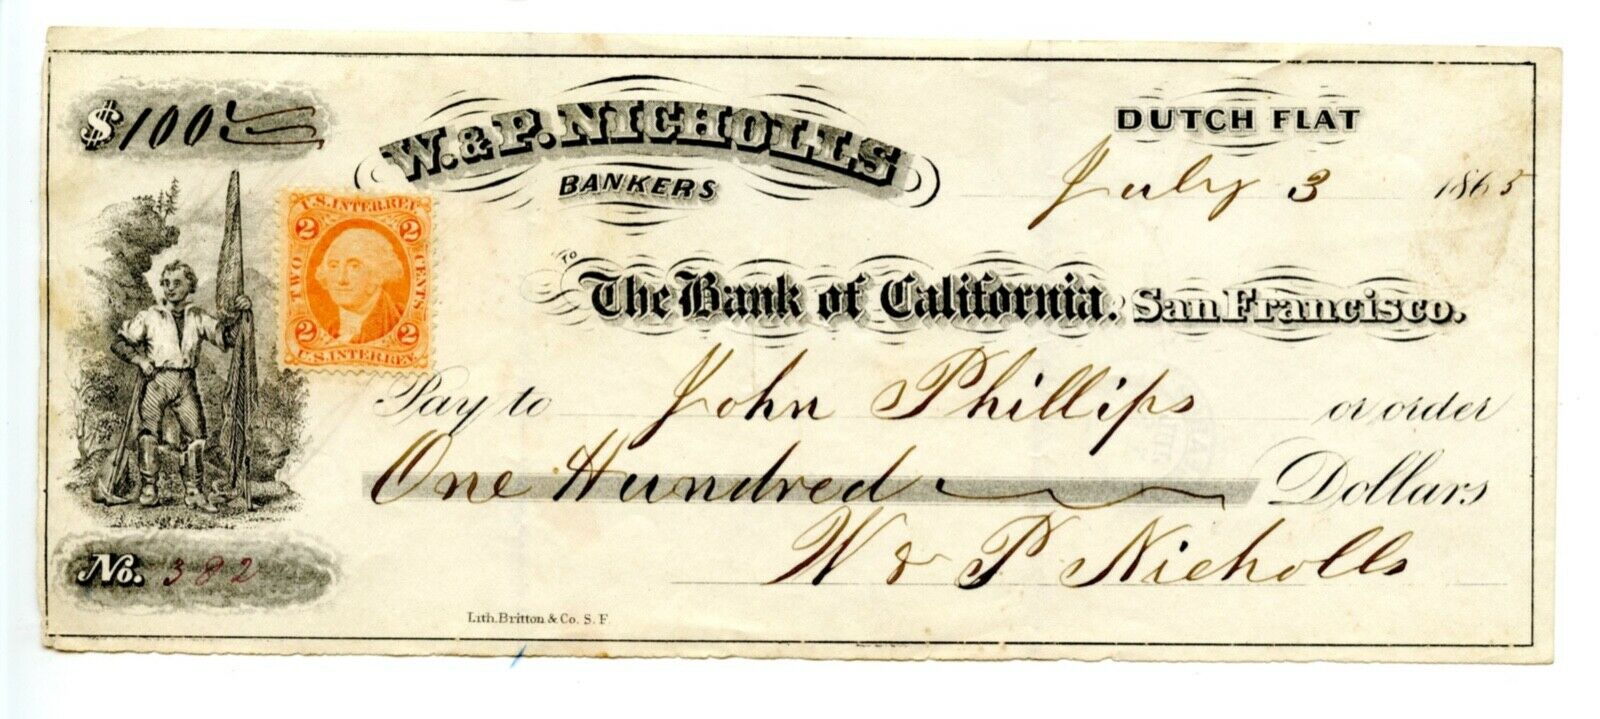 $100
W. & P. NICHOLLS
BANKERS
DUTCH FLAT
July 3 1865
U.S. INTER. REV.
2 2
TWO CENTS
2 2
U.S. INTER. REV.
TO
The Bank of California. San Francisco.
Pay to John Phillips or order
One Hundred Dollars
W & P Nicholls
No. 382
Lith. Britton & Co. S. F.